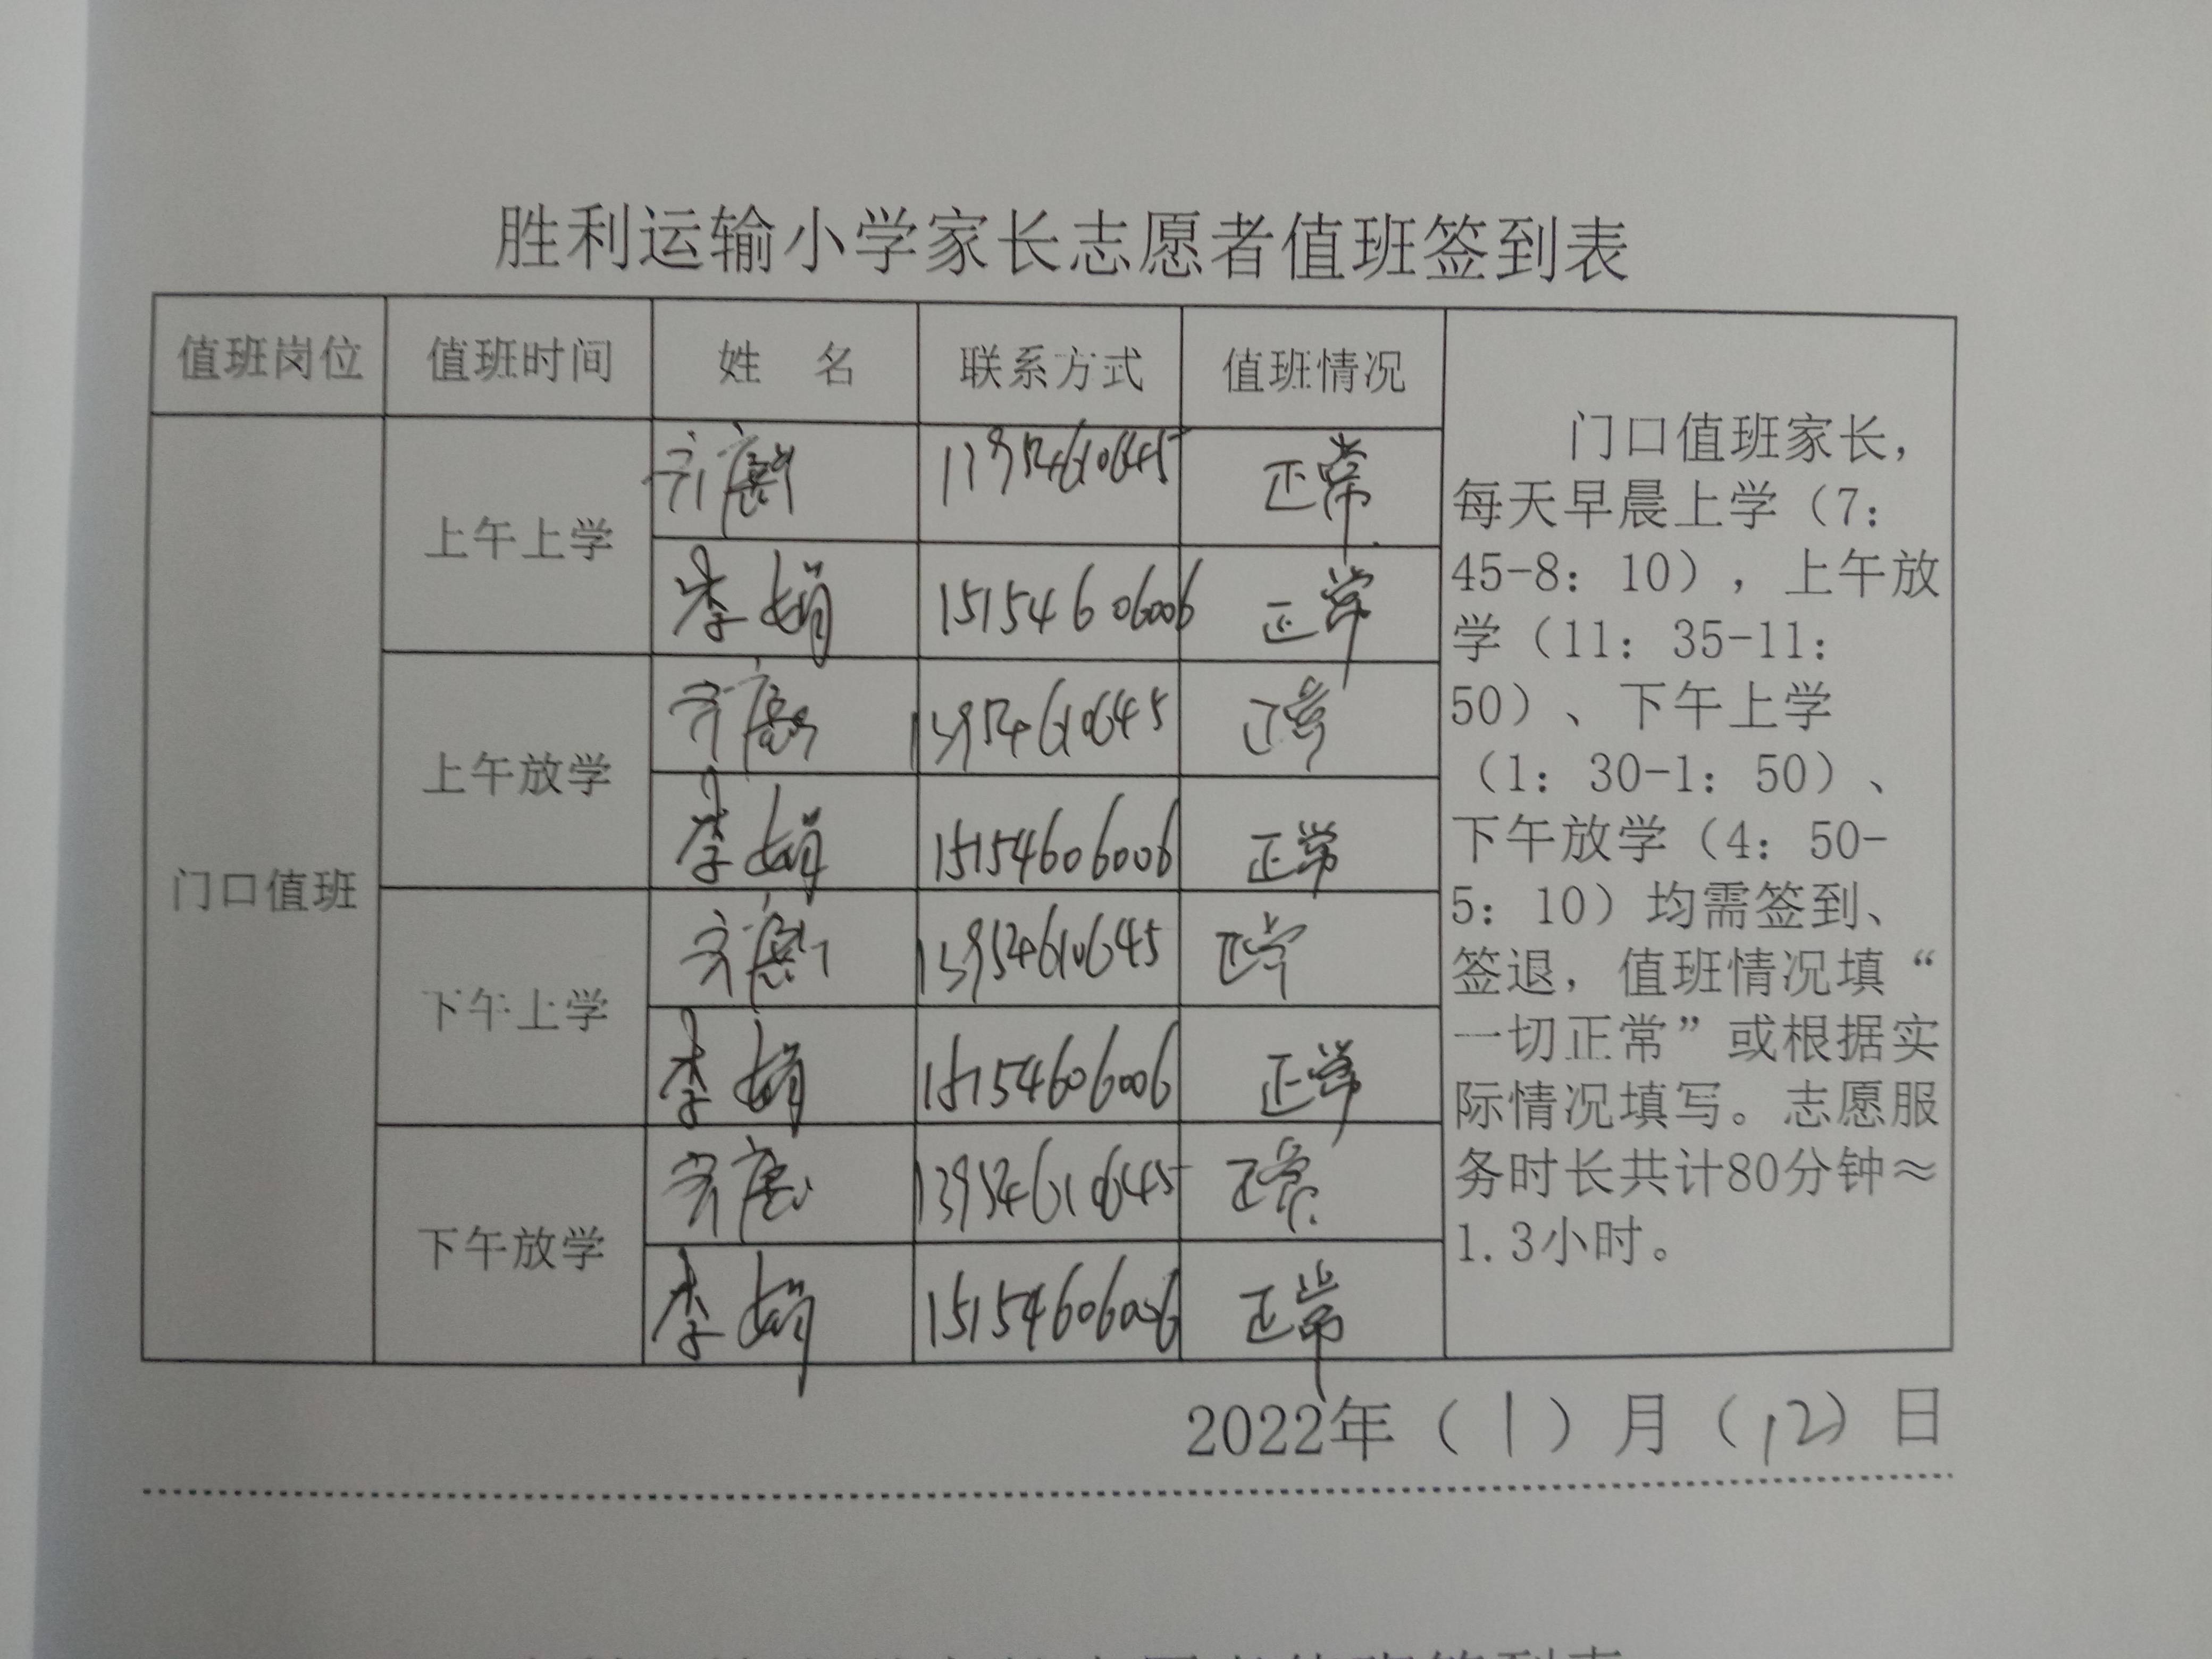 胜利运输小学家长志愿者值班签到表
值班岗位 值班时间 姓 名 联系方式 值班情况
门口值班
上午上学
13954610645 正常
李娟 15154606006 正常
上午放学
13954610645 正常
李娟 15154606006 正常
下午上学
13954610645 正常
李娟 15154606006 正常
下午放学
13954610645 正常
李娟 15154606006 正常
门口值班家长，
每天早晨上学（7：
45-8：10），上午放
学（11：35-11：
50）、下午上学
（1：30-1：50）、
下午放学（4：50-
5：10）均需签到、
签退，值班情况填“
一切正常”或根据实
际情况填写。志愿服
务时长共计80分钟≈
1.3小时。
2022年（1）月（12）日